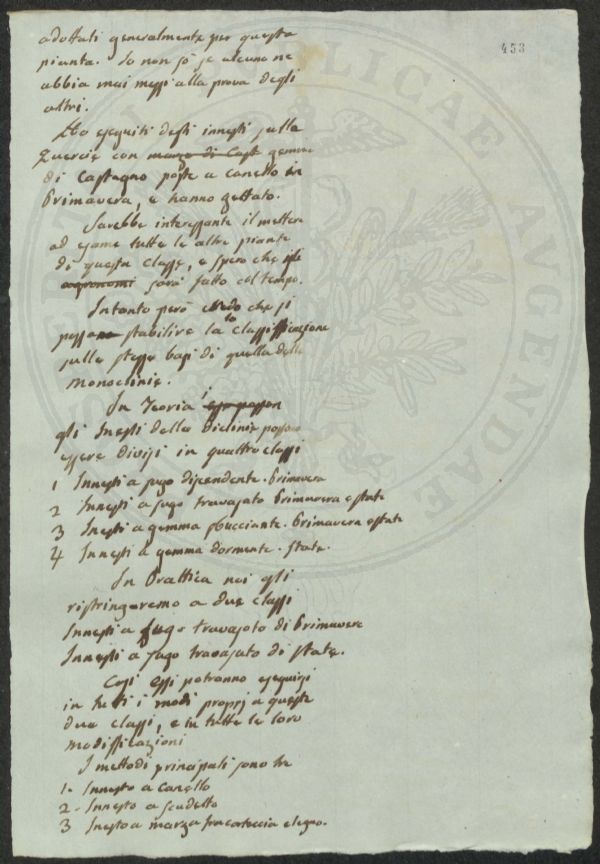 453
adottati generalmente per questa
pianta. Io non sò se alcuno ne
abbia mai messi alla prova degli
altri.
Ho eseguiti degli innesti sulla
Quercie con marza di Cast gemme
di Castagno poste a canello in
Primavera, e hanno gettato.
Sarebbe interessante il mettere
ad esame tutte le altre piante
di questa classe, e spero che
agronomi sarà fatto col tempo.
Intanto però credo che si
possano stabilire la classificazione
sulle stesse basi di quella delle
monoclinie.
In Teoria
gli Inesti della Diclinie posson
essere divisi in quattro classi
1 Innesti a sugo discendente. Primavera
2 Innesti a sugo travasato Primavera estate
3 Inesti a gemma sbucciante. Primavera estate
4 Innesti a gemma dormente. state.
In Prattica noi gli
ristringeremo a due classi
Innesti a sugo travasato di Primavera
Innesti a sugo travasato di state.
Così essi potranno eseguirsi
in tutti i modi proprj a queste
due classi, e in tutte le loro
modifficazioni
I mettodi principali sono tre
1. Innesto a canello
2 - Innesto a scudetto
3 Inesto a marza fra corteccia e legno.
PUBLICAE
AUGENDAE